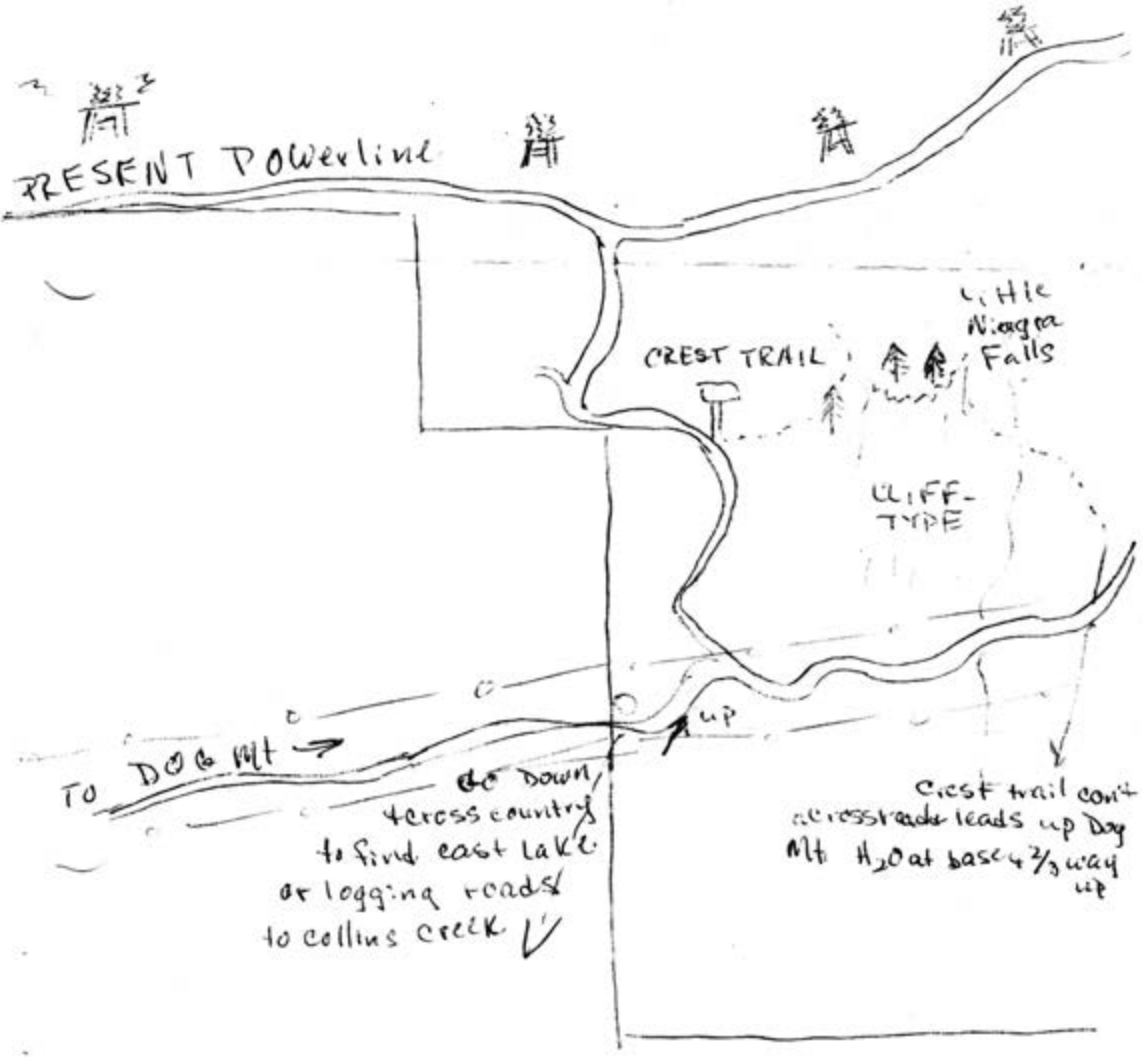 PRESENT Powerline
Little
Niagra
Falls
CREST TRAIL
CLIFF-
TYPE
up
TO DOG Mt
GO DOWN
+cross country
to find east Lake
or logging roads
to collins creek
Crest trail con't
across leads up Dog
Mt. H2O at base & 2/3 way
up